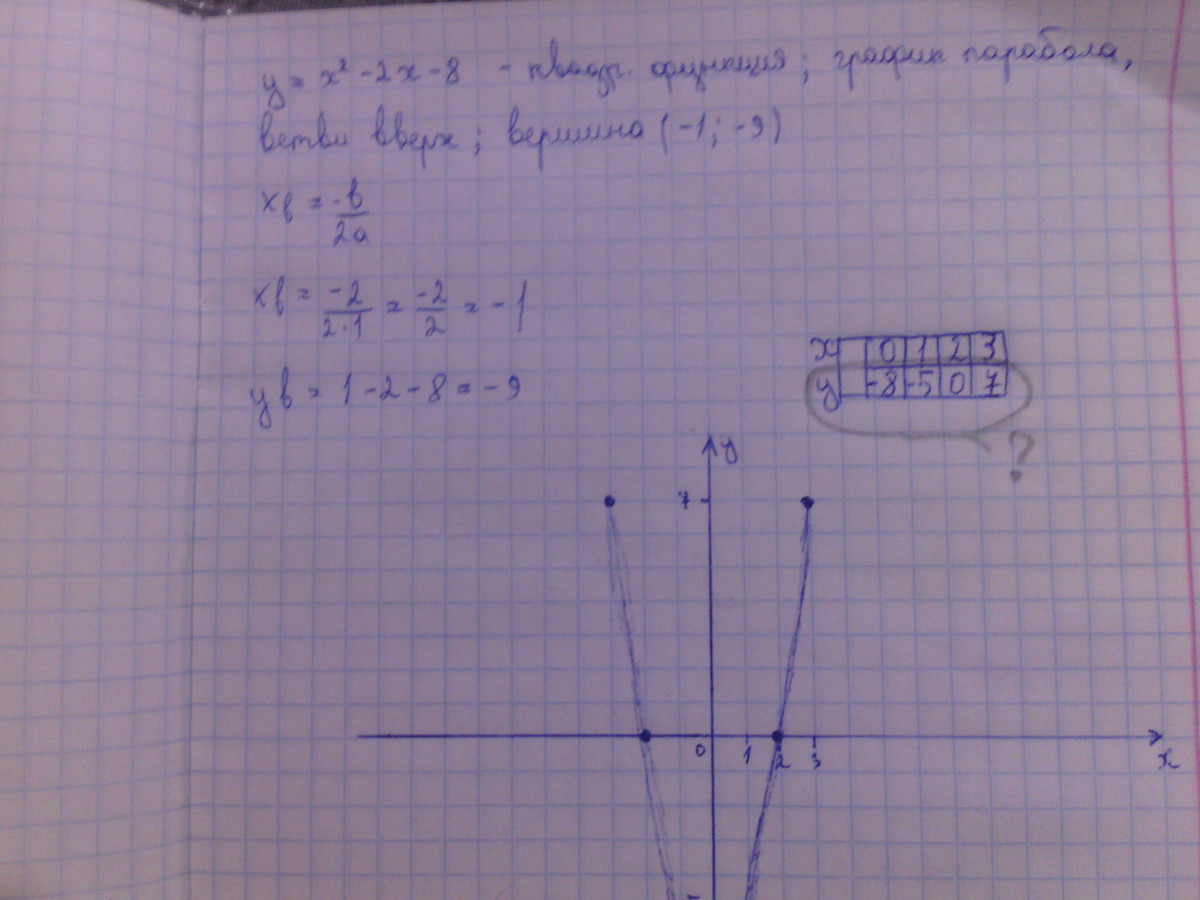 y = x² - 2x - 8 - квадр. функция; график парабола,
ветви вверх; вершина (-1; -9)
xв = -b/2a
xв = -2/2·1 = -2/2 = -1
yв = 1 - 2 - 8 = -9
x 0 1 2 3
y -8 -5 0 7
?
y
7
0 1 2 3
x